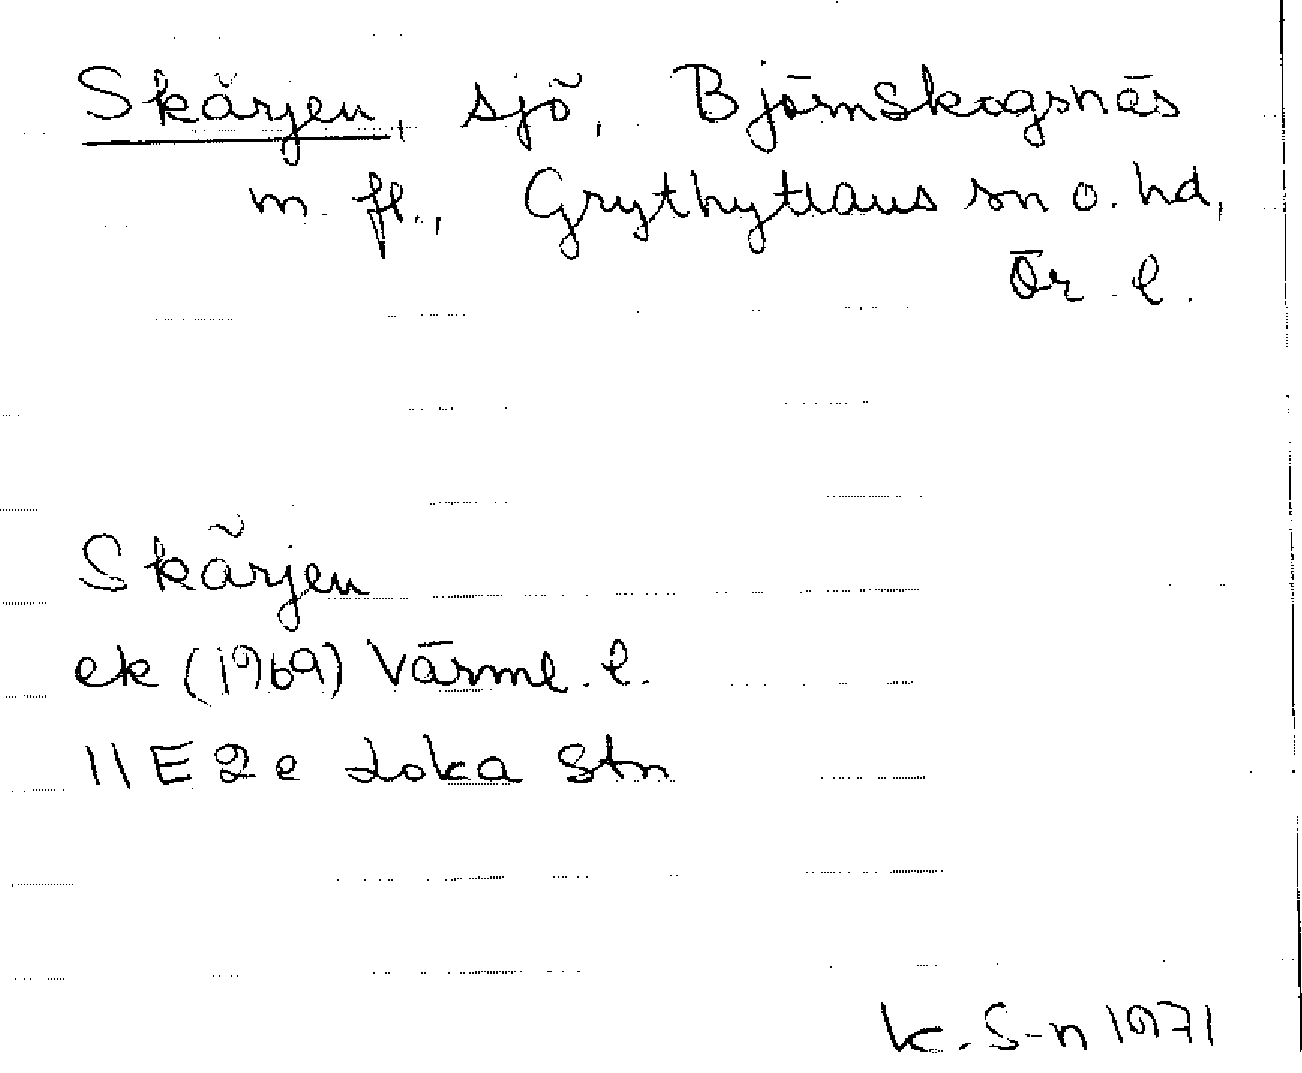 Skärjen, sjö, Björnskogsnäs
m. fl., Grythyttans sn o. hd,
Ör. l.
Skärjen
ek (1969) Värml. l.
11E 2e Loka Stn
K. S-n 1971